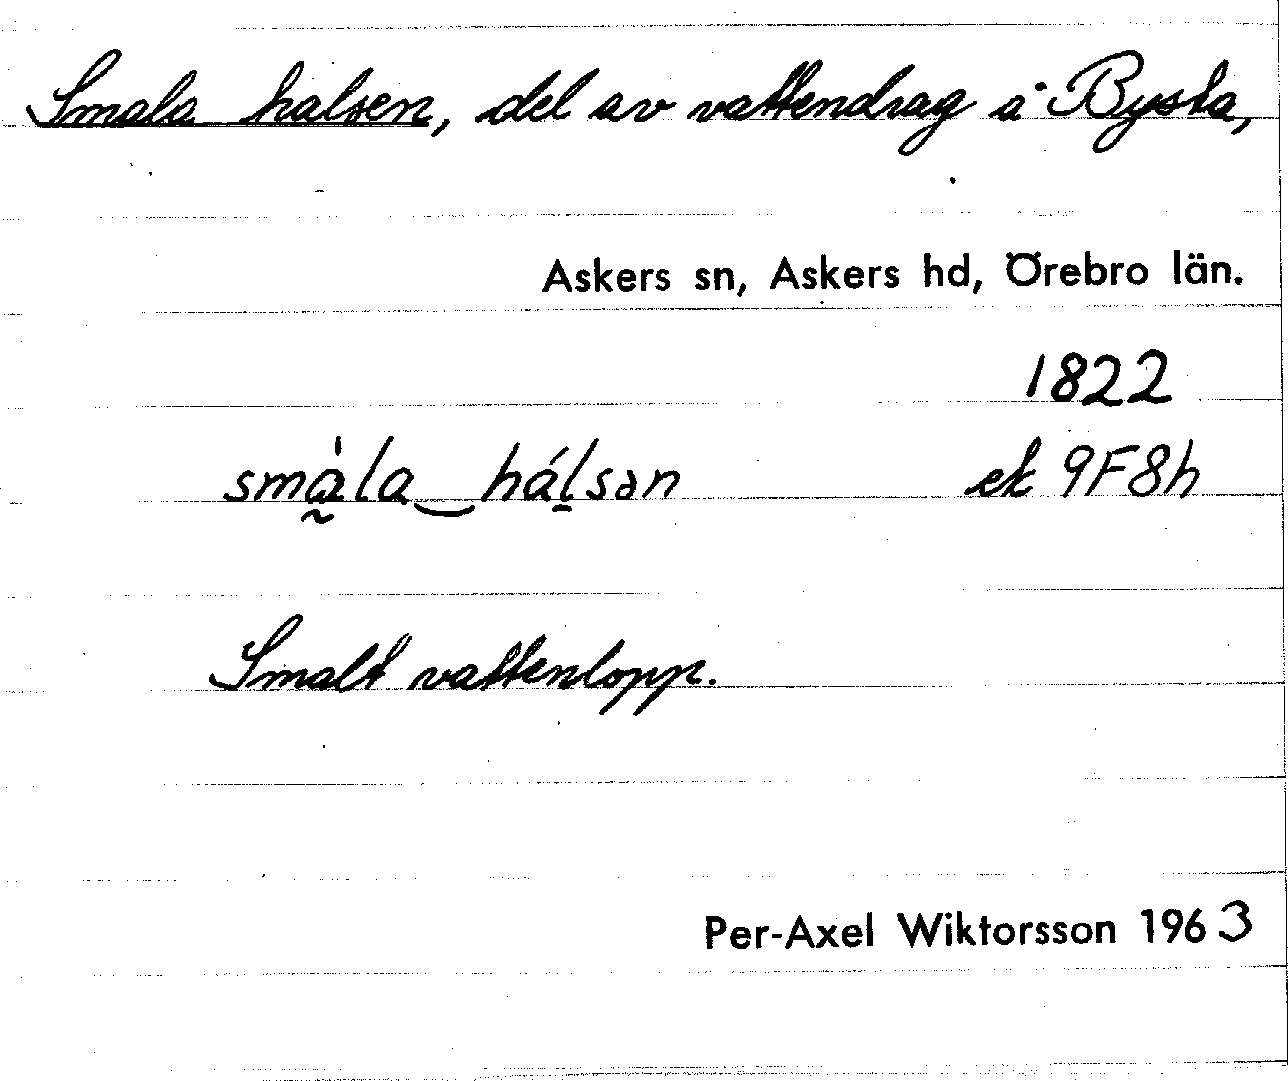 Smala halsen, del av vattendrag å Bysta,
Askers sn, Askers hd, Örebro län.
1822
smà̰la‿hál̠sən ek 9F8h
Smalt vattenlopp.
Per-Axel Wiktorsson 1963